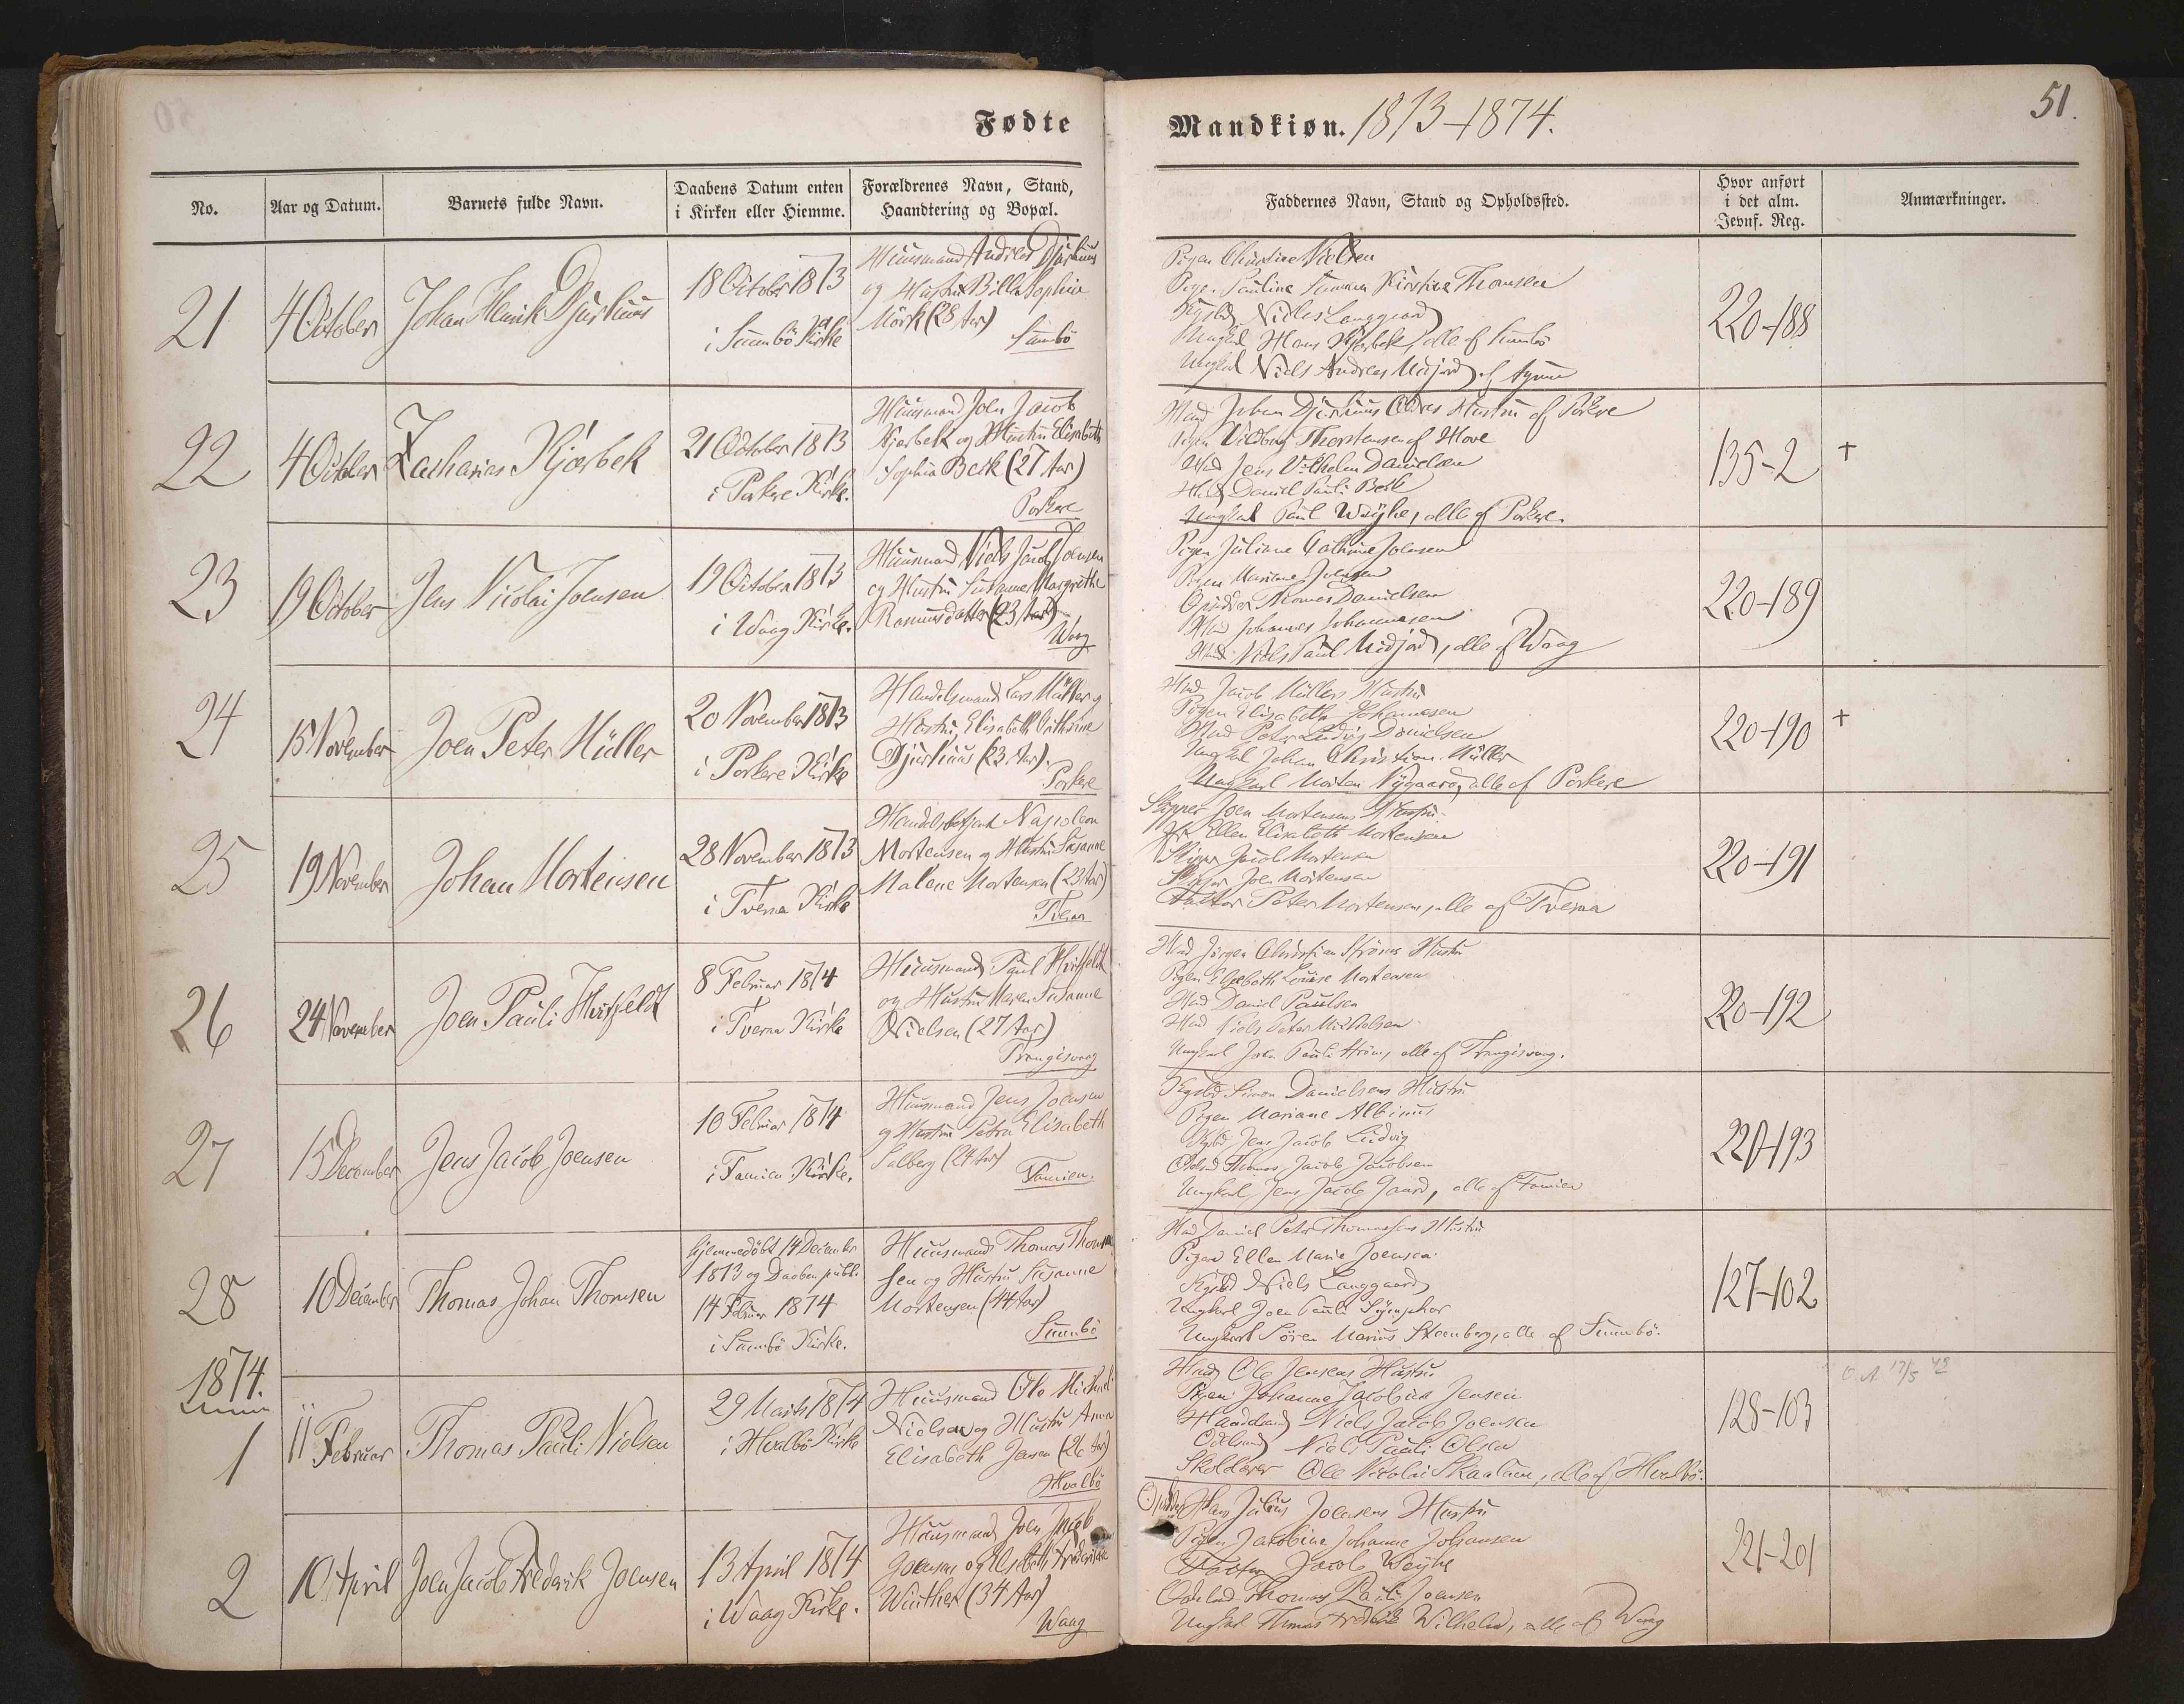 Fødte
Mandkiøn. 1873-1874.
51.
No.
Aar og Datum.
Barnets fulde Navn.
Daabens Datum enten
i Kirken eller Hiemme.
Forældrenes Navn, Stand,
Haandtering og Bopæl.
Faddernes Navn, Stand og Opholdssted.
Hvor anført
i det alm.
Jevnf. Reg.
Anmærkninger.
21
4 October
Johan Henrik Djurhuus
18 October 1873
i Sumbö Kirke
Huusmand Andreas Djurhuus
og Hustru Billa Sophie
Mörk (28 Aar)
Sumbö
Pigen Christine Nielsen
Pige Pauline Kirstine Thomsen
Niels Langgaard
Ungkarl Hans Kjærbek, alle af Sumbö
Ungkarl Niels Andreas Midjord af
220-188
22
4 October
Zacharias Kjærbek
21 October 1873
i Porkere Kirke.
Huusmand Joen Jacob
Kjærbek og Hustru Elisabeth
Sophia Beck (27 Aar)
Porkere
Hmd Johan Djurhuus Hustru af Porkere
Pigen Vilborg Thorstensen af Hove
Hmd Jens Vilhelm Danielsen
Hmd Daniel Pauli Beck
Ungkarl Paul Weyhe, alle af Porkere.
135-2
+
23
19 October
Jens Nicolai Joensen
19 October 1873
i Waag Kirke.
Huusmand Niels Jacob Joensen
og Hustru Susanne Margrethe
Rasmusdatter (23 Aar)
Waag
Pigen Juliane Cathrine Joensen
Pigen Mariane Joensen
Thomas Danielsen
Hmd Johannes Johannesen
Hmd Niels Paul Midjord, alle af Waag
220-189
24
15 November
Joen Peter Müller
20 November 1873
i Porkere Kirke
Handelsmand Lars Müller og
Hustru Elisabeth Cathrine
Djurhuus (23 Aar).
Porkere
Hmd Jacob Müllers Hustru
Pigen Elisabeth Johannesen
Hmd Peter Ludvig Danielsen
Ungkarl Johan Christian Müller
Ungkarl Morten Nygaard, alle af Porkere
220-190
+
25
19 November
Johan Mortensen
28 November 1873
i Tveraa Kirke
Handelsbetjent Napoleon
Mortensen og Hustru Susanne
Malene Mortensen (23 Aar)
Tveraa
Skipper Joen Mortensens Hustru
Ellen Elisabeth Mortensen
Skipper Jacob Mortensen
Skipper Joen Mortensen
Factor Peter Mortensen, alle af Tveraa
220-191
26
24 November
Joen Pauli Hvitfeldt
8 Februar 1874
i Tveraa Kirke
Huusmand Paul Hvitfeldt
og Hustru Maren Susanne
Nielsen (27 Aar)
Trangisvaag
Hmd Jörgen Christian Ströms Hustru
Pigen Elsebeth Louise Mortensen
Hmd Daniel Paulsen
Hmd Niels Peter Mikkelsen
Ungkarl Joen Pauli Ström, alle af Trangisvaag.
220-192
27
15 December
Jens Jacob Joensen
10 Februar 1874
i Famien Kirke.
Huusmand Jens Joensen
og Hustru Petra Elisabeth
Salberg (24 Aar)
Famien.
Kgsbd Simon Danielsens Hustru
Pigen Mariane Albinus
Kgsbd Jens Jacob Ludvig
Thomas Jacob Jacobsen
Ungkarl Jens Jacob Gaard, alle af Famien
220-193
28
10 December
Thomas Johan Thomsen
hjemmedöbt 14 December
1873 og Daaben publ.
14 Februar 1874
i Sumbö Kirke.
Huusmand Thomas Thom
sen og Hustru Susanne
Mortensen (44 Aar)
Sumbö
Hmd Daniel Peter Thomassens Hustru
Pigen Ellen Marie Joensen
Kgsbd Niels Langgaard
Ungkarl Joen Pauli
Ungkarl Sören Marius Steenberg, alle af Sumbö.
127-102
1874.
1
11 Februar
Thomas Pauli Nielsen
29 Marts 1874
i Hvalbö Kirke
Huusmand Ole Michael
Nielsen og Hustru Anna
Elisabeth Jensen (26 Aar)
Hvalbö
Hmd Ole Jensens Hustru
Pigen Johanne Jacobine Jensen
Niels Jacob Joensen
Odelsmand Niels Pauli Olsen
Skolelærer Ole Nicolai Skaalum, alle af Hvalbö.
128-103
17/5 42
2
10 April
Joen Jacob Frederik Joensen
13 April 1874
i Waag Kirke.
Huusmand Joen Jacob
Joensen og Elsebeth Frederikke
Winther (34 Aar)
Waag
Hans Julius Joensens Hustru
Pigen Jacobine Johanne Johansen
Factor Jacob Weyhe
Thomas Pauli Joensen
Ungkarl Thomas Frederik Wilhelm, alle af Waag
221-201